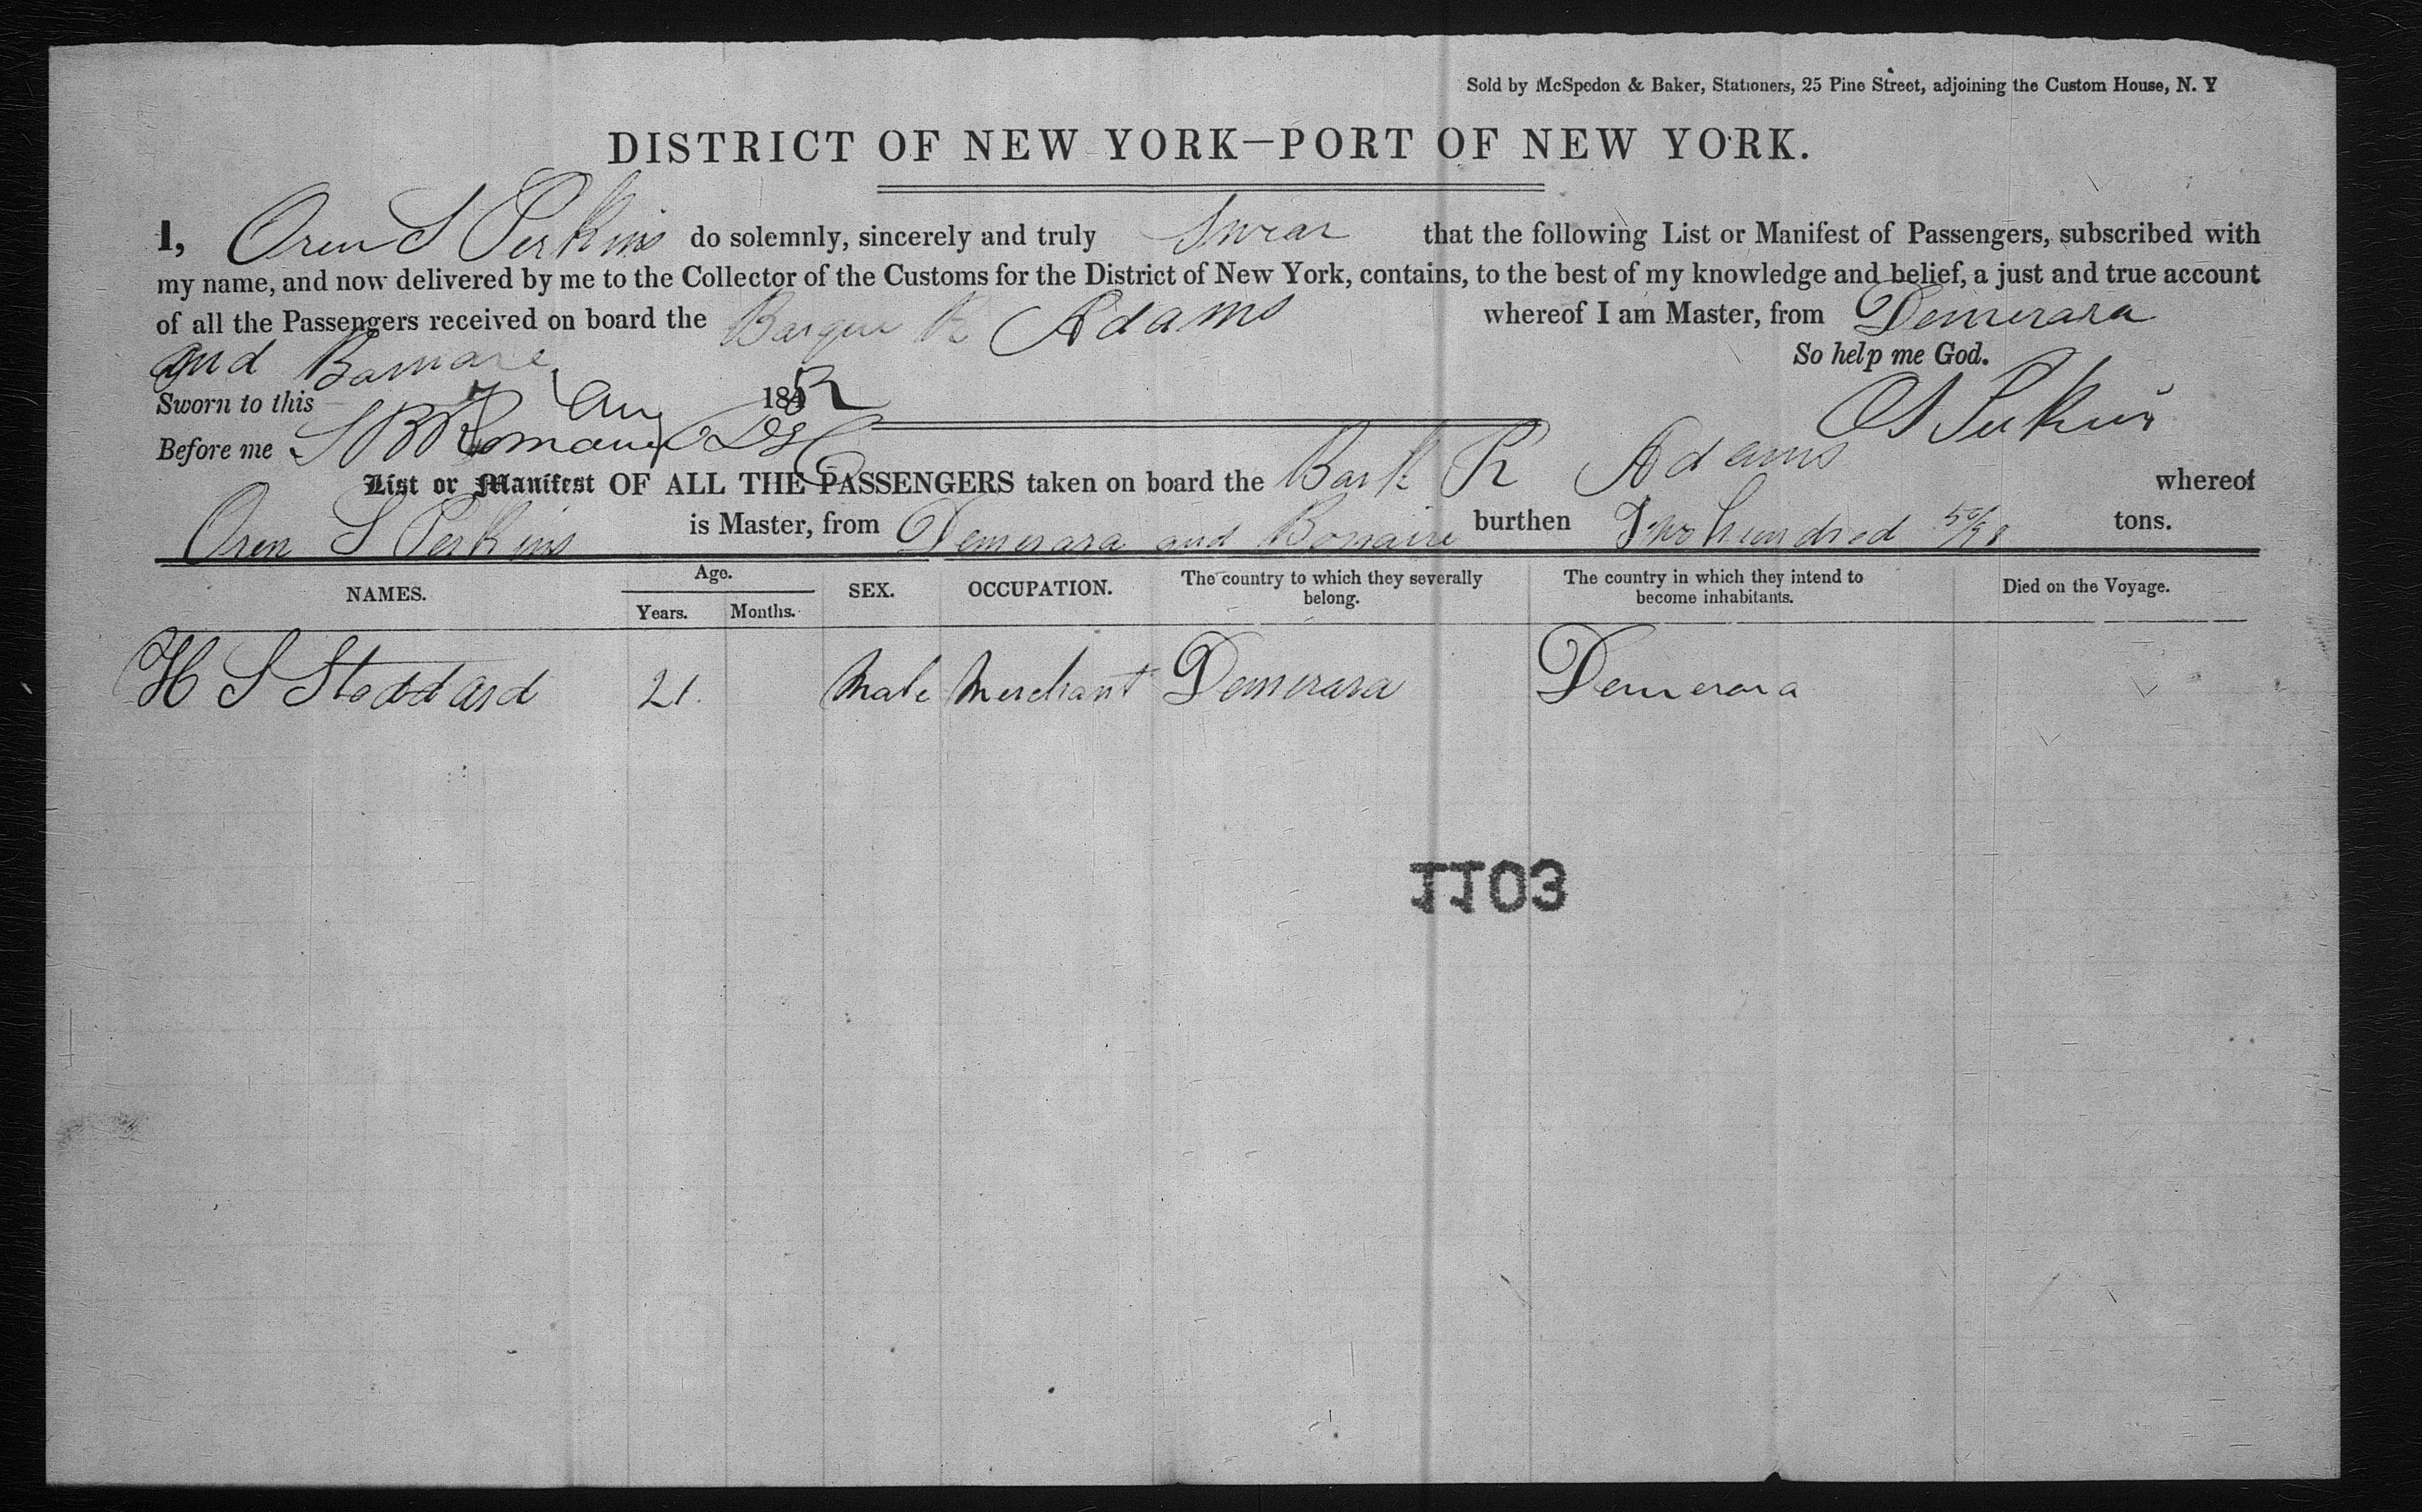 Sold by McSpedon & Baker, Stationers, 25 Pine Street, adjoining the Custom House, N. Y
DISTRICT OF NEW YORK—PORT OF NEW YORK.
I, Oren S Perkins do solemnly, sincerely and truly Swear that the following List or Manifest of Passengers, subscribed with
my name, and now delivered by me to the Collector of the Customs for the District of New York, contains, to the best of my knowledge and belief, a just and true account
of all the Passengers received on board the Barque R Adams whereof I am Master, from Demerara
and
So help me God.
Sworn to this 7 Aug 1852
O S Perkins
Before me S B Romaine
List or Manifest OF ALL THE PASSENGERS taken on board the Bark R Adams whereof
Oren S Perkins is Master, from Demerara and Bonaire burthen Two hundred tons.
NAMES. Age. SEX. OCCUPATION. The country to which they severally belong. The country in which they intend to become inhabitants. Died on the Voyage.
Years. Months.
H S Stoddard 21 Male Merchant Demerara Demerara
1103